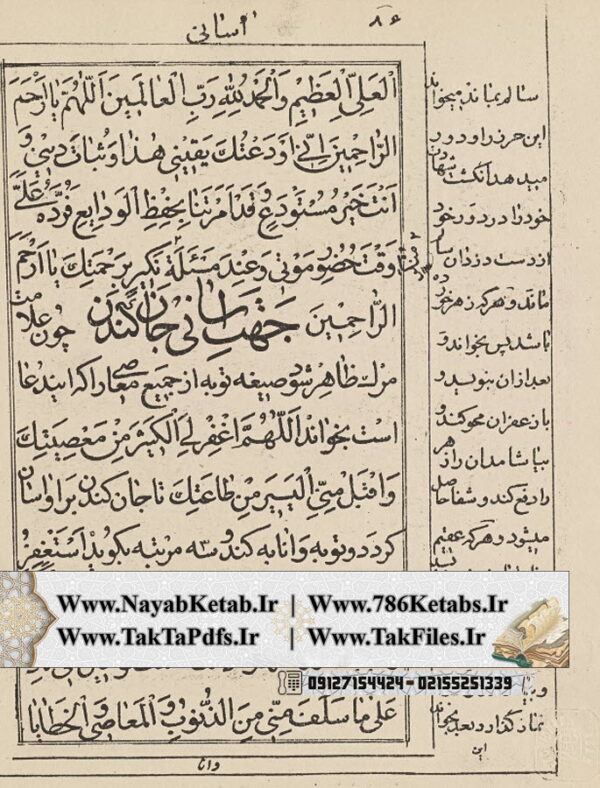 ۸۶
آسانی
الْعَلِیِّ الْعَظِیمِ وَالْحَمْدُ لِلّٰهِ رَبِّ الْعَالَمِینَ اَللّٰهُمَّ یَا اَرْحَمَ
الرَّاحِمِینَ اِنِّی اَوْدَعْتُكَ یَقِینِی هٰذَا وَثَبَاتَ دِینِی وَ
اَنْتَ خَیْرُ مُسْتَوْدَعٍ وَقَدْ اَمَرْتَنَا بِحِفْظِ الْوَدَایِعِ فَرُدَّهُ عَلَیَّ
وَقْتَ حُضُورِ مَوْتِی وَعِنْدَ مَسْئَلَةِ نَكِیرٍ بِرَحْمَتِكَ یَا اَرْحَمَ
الرَّاحِمِینَ جهة آسانی جان کندن چون علامت
مرك ظاهر شود صیغه توبه از جمیع معاصی ادا کند ایندعا
است بخواند اَللّٰهُمَّ اغْفِرْ لِیَ الْكَثِیرَ مِنْ مَعْصِیَتِكَ
وَاقْبَلْ مِنِّی الْیَسِیرَ مِنْ طَاعَتِكَ تا جان کندن بر او آسان
کردد و توبه و انابه کند و سه مرتبه بکوید اَسْتَغْفِرُ
عَلٰی مَا سَلَفَ مِنِّی مِنَ الذُّنُوبِ وَالْمَعَاصِی الْخَطَایَا
وانا
سالم بماند میخواند
این حرز را و دور
میدهد انکشت شهادت
خود را در دور خود
از دست دزدان
ماند و هرکرا زهر خورده
باشد پس بخواند و
بعد از ان بنویسد و
با زعفران محو کند و
بیاشامد ان زهر
را دفع کند و شفا حاصل
میشود و هرکه عقیم
نماز کذارد و بعد بخواند
این
Www.NayabKetab.Ir | Www.786Ketabs.Ir
Www.TakTaPdfs.Ir | Www.TakFiles.Ir
09127154424 - 02155251339